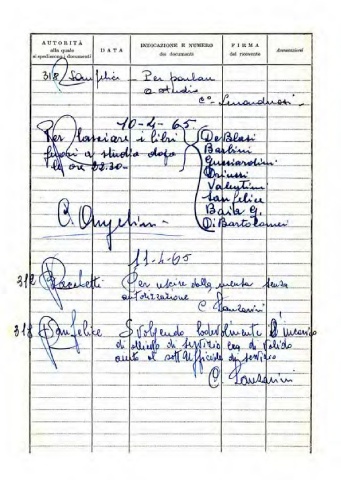 AUTORITÀ alla quale si spediscono i documenti
DATA
INDICAZIONE E NUMERO dei documenti
FIRMA del ricevente
Annotazioni
318 Sanfelici - Per parlare
a studio
C°.
10-4-65
Per lasciare i libri
fuori a studio dopo
le ore 22.30-
De Blasi
Barlini
Guicciardini
Briussi
Valentini
Sanfelice
Baila G.
Di Bartolomei
C. Angelini
11-4-65
312 Bocchetti Per uscire dalla mensa senza
autorizzazione
C. Lanzarini
318 Sanfelice Svolgendo lodevolmente l'incarico
di allievo di servizio era di valido
aiuto al sottufficiale di servizio
C. Lanzarini